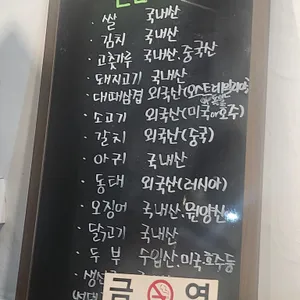 · 쌀 국내산
· 김치 국내산
· 고춧가루 국내산.중국산
· 돼지고기 국내산
· 대패삼겹 외국산(오스트레일리아)
· 소고기 외국산(미국or호주)
· 갈치 외국산(중국)
· 아귀 국내산
· 동태 외국산(러시아)
· 오징어 국내산.원양산
· 닭고기 국내산
· 두부 수입산.미국호주등
금 연